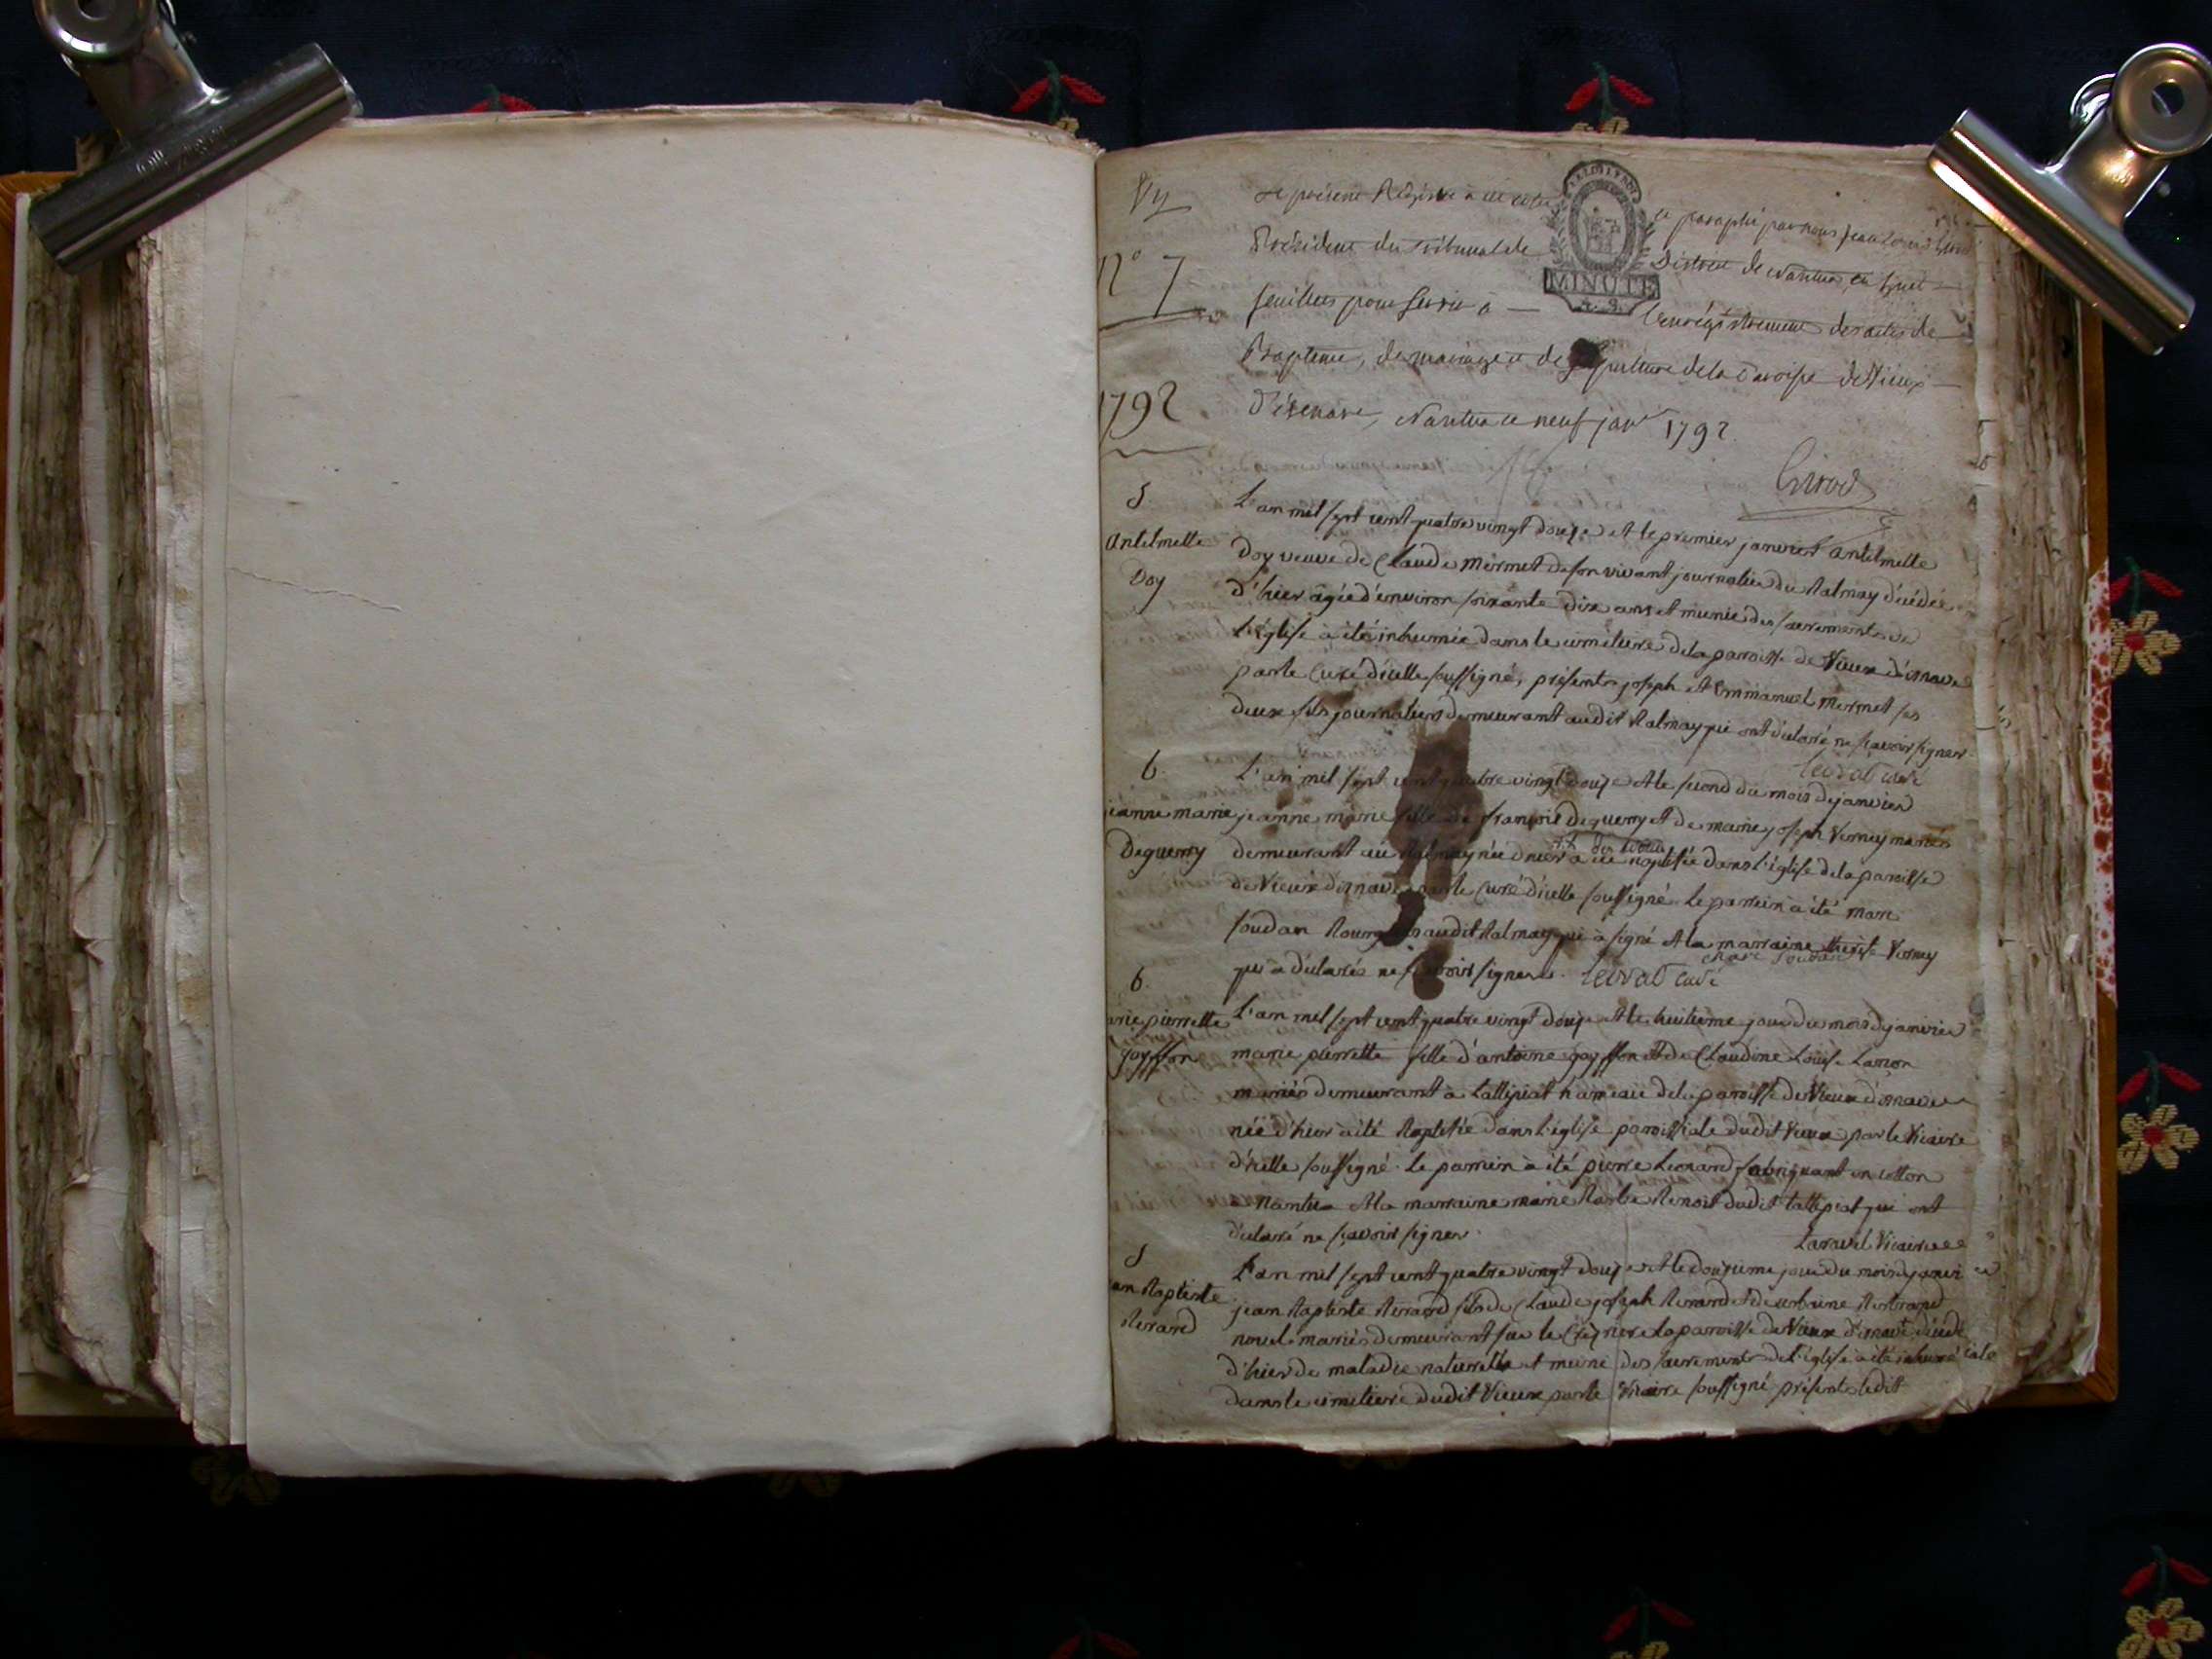 Le présent Registre a été cotté et paraphé par nous jean Louis Girod
Président du tribunal de District de Nantua en huit
N° 7
feuillets pour servir à l'enrégistrement des actes de
MINUTE
Baptême, de mariage et de sépulture de la Paroisse de Vieux
1792
D'isenave, Nantua ce neuf janv 1792
Girod
S
L'an mil sept cent quatre vingt douze et le premier janvier antelmette
antelmette
Doy
Doy veuve de Claude Mermet de son vivant journalier du Balmay décédée
d'hier agée d'environ soixante dix ans et munie des sacrements de
l'église à été inhumée dans le cimetiere de la paroisse de Vieux d'isnave
par le Curé d'icelle soussigné, présents joseph et Emmanuel Mermet ses
deux fils journaliers demeurant audit Balmay qui ont déclaré ne sçavoir signer
curé
b.
L'an mil sept cent quatre vingt douze et le second du mois de janvier
jeanne marie
Deguerry
jeanne marie fille de françois Deguerry et de marie joseph Verney mariés
demeurant au Balmay née d'hier a été baptisée dans l'église de la paroisse
de Vieux d'isnave par le Curé d'icelle soussigné. Le parrein a été marc
soudan audit Balmay qui à signé et la marraine Verney
marc soudan
qui a déclarée ne sçavoir signer. curé
b.
L'an mil sept cent quatre vingt douze et le huitieme jour du mois de janvier
marie pierrette
goyffon
marie pierrette fille d'antoine goyffon et de Claudine Louise Lanon
mariés demeurant à tallipiat hameau de la paroisse de Vieux d'isnave
née d'hier a été Baptisée dans l'église paroissiale dudit Vieux par le Vicaire
d'icelle soussigné. Le parrein à été pierre Leonard fabriquant en cotton
a Nantua et la marraine marie Benoit dudit tallipiat qui ont
déclaré ne sçavoir signer.
Laravel Vicaire
S
L'an mil sept cent quatre vingt douze et le douzieme jour du mois de janvier
jean Baptiste
Berard
jean Baptiste Berard fils de Claude joseph Berard et de
mariés demeurant sur le de la paroisse de Vieux d'isnave décédé
d'hier de maladie naturelle et muni des sacrements de l'église a été inhumé
dans le cimetiere dudit Vieux par le Vicaire soussigné présents ledit